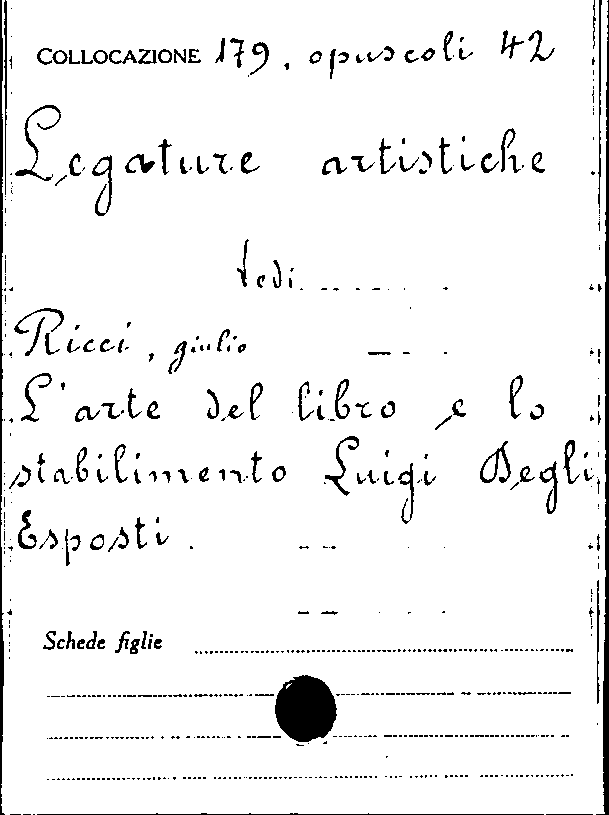 COLLOCAZIONE 179, opuscoli 42
Legature artistiche
vedi
Ricci, giulio
L'arte del libro e lo
stabilimento Luigi Degli
Esposti.
Schede figlie